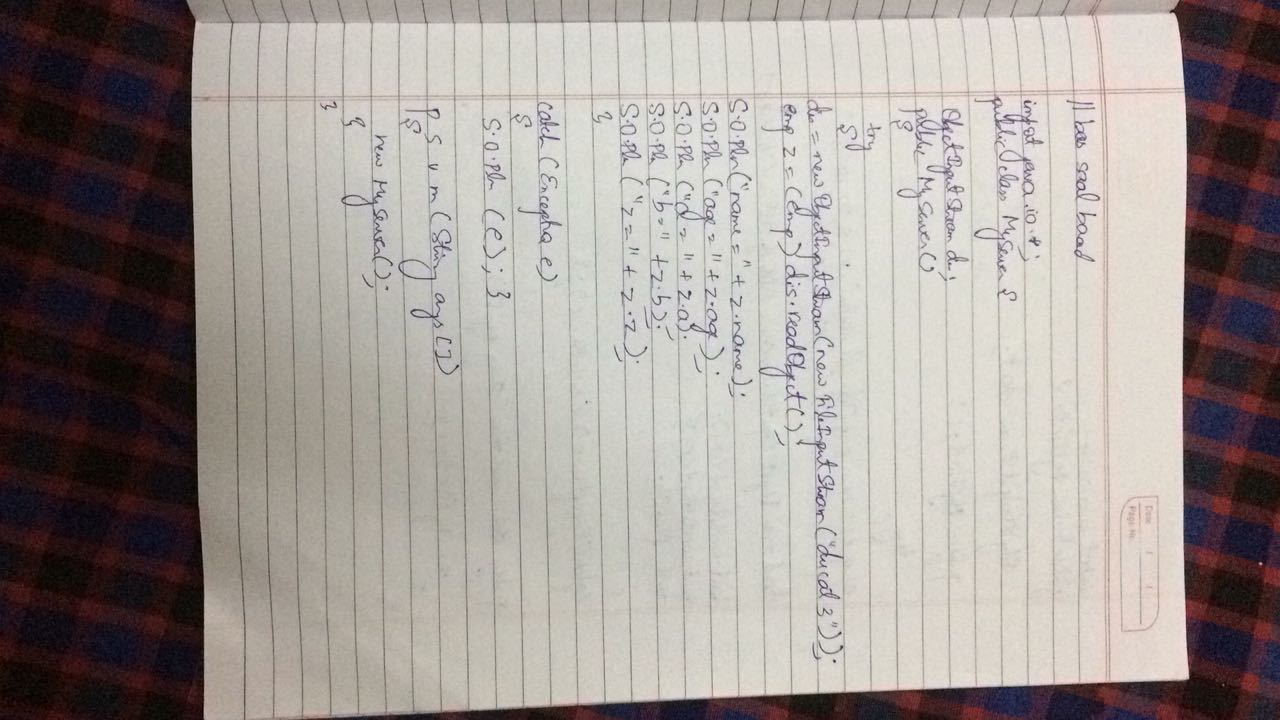 Date / /
Page No.
// bees saal baad
import java.io.*;
public class MyServer {
ObjectInputStream dis;
public MyServer()
{
try
{
dis = new ObjectInputStream(new FileInputStream("ducat3"));
emp z = (emp) dis.readObject();
S.O.Pln("name=" + z.name);
S.O.Pln ("age=" + z.age);
S.O.Pln ("a = " + z.a);
S.O.Pln ("b=" + z.b);
S.O.Pln ("z=" + z.z);
}
catch (Exception e)
{
S.O.Pln (e); }
p s v m (String args[])
{
new MyServer();
}
}